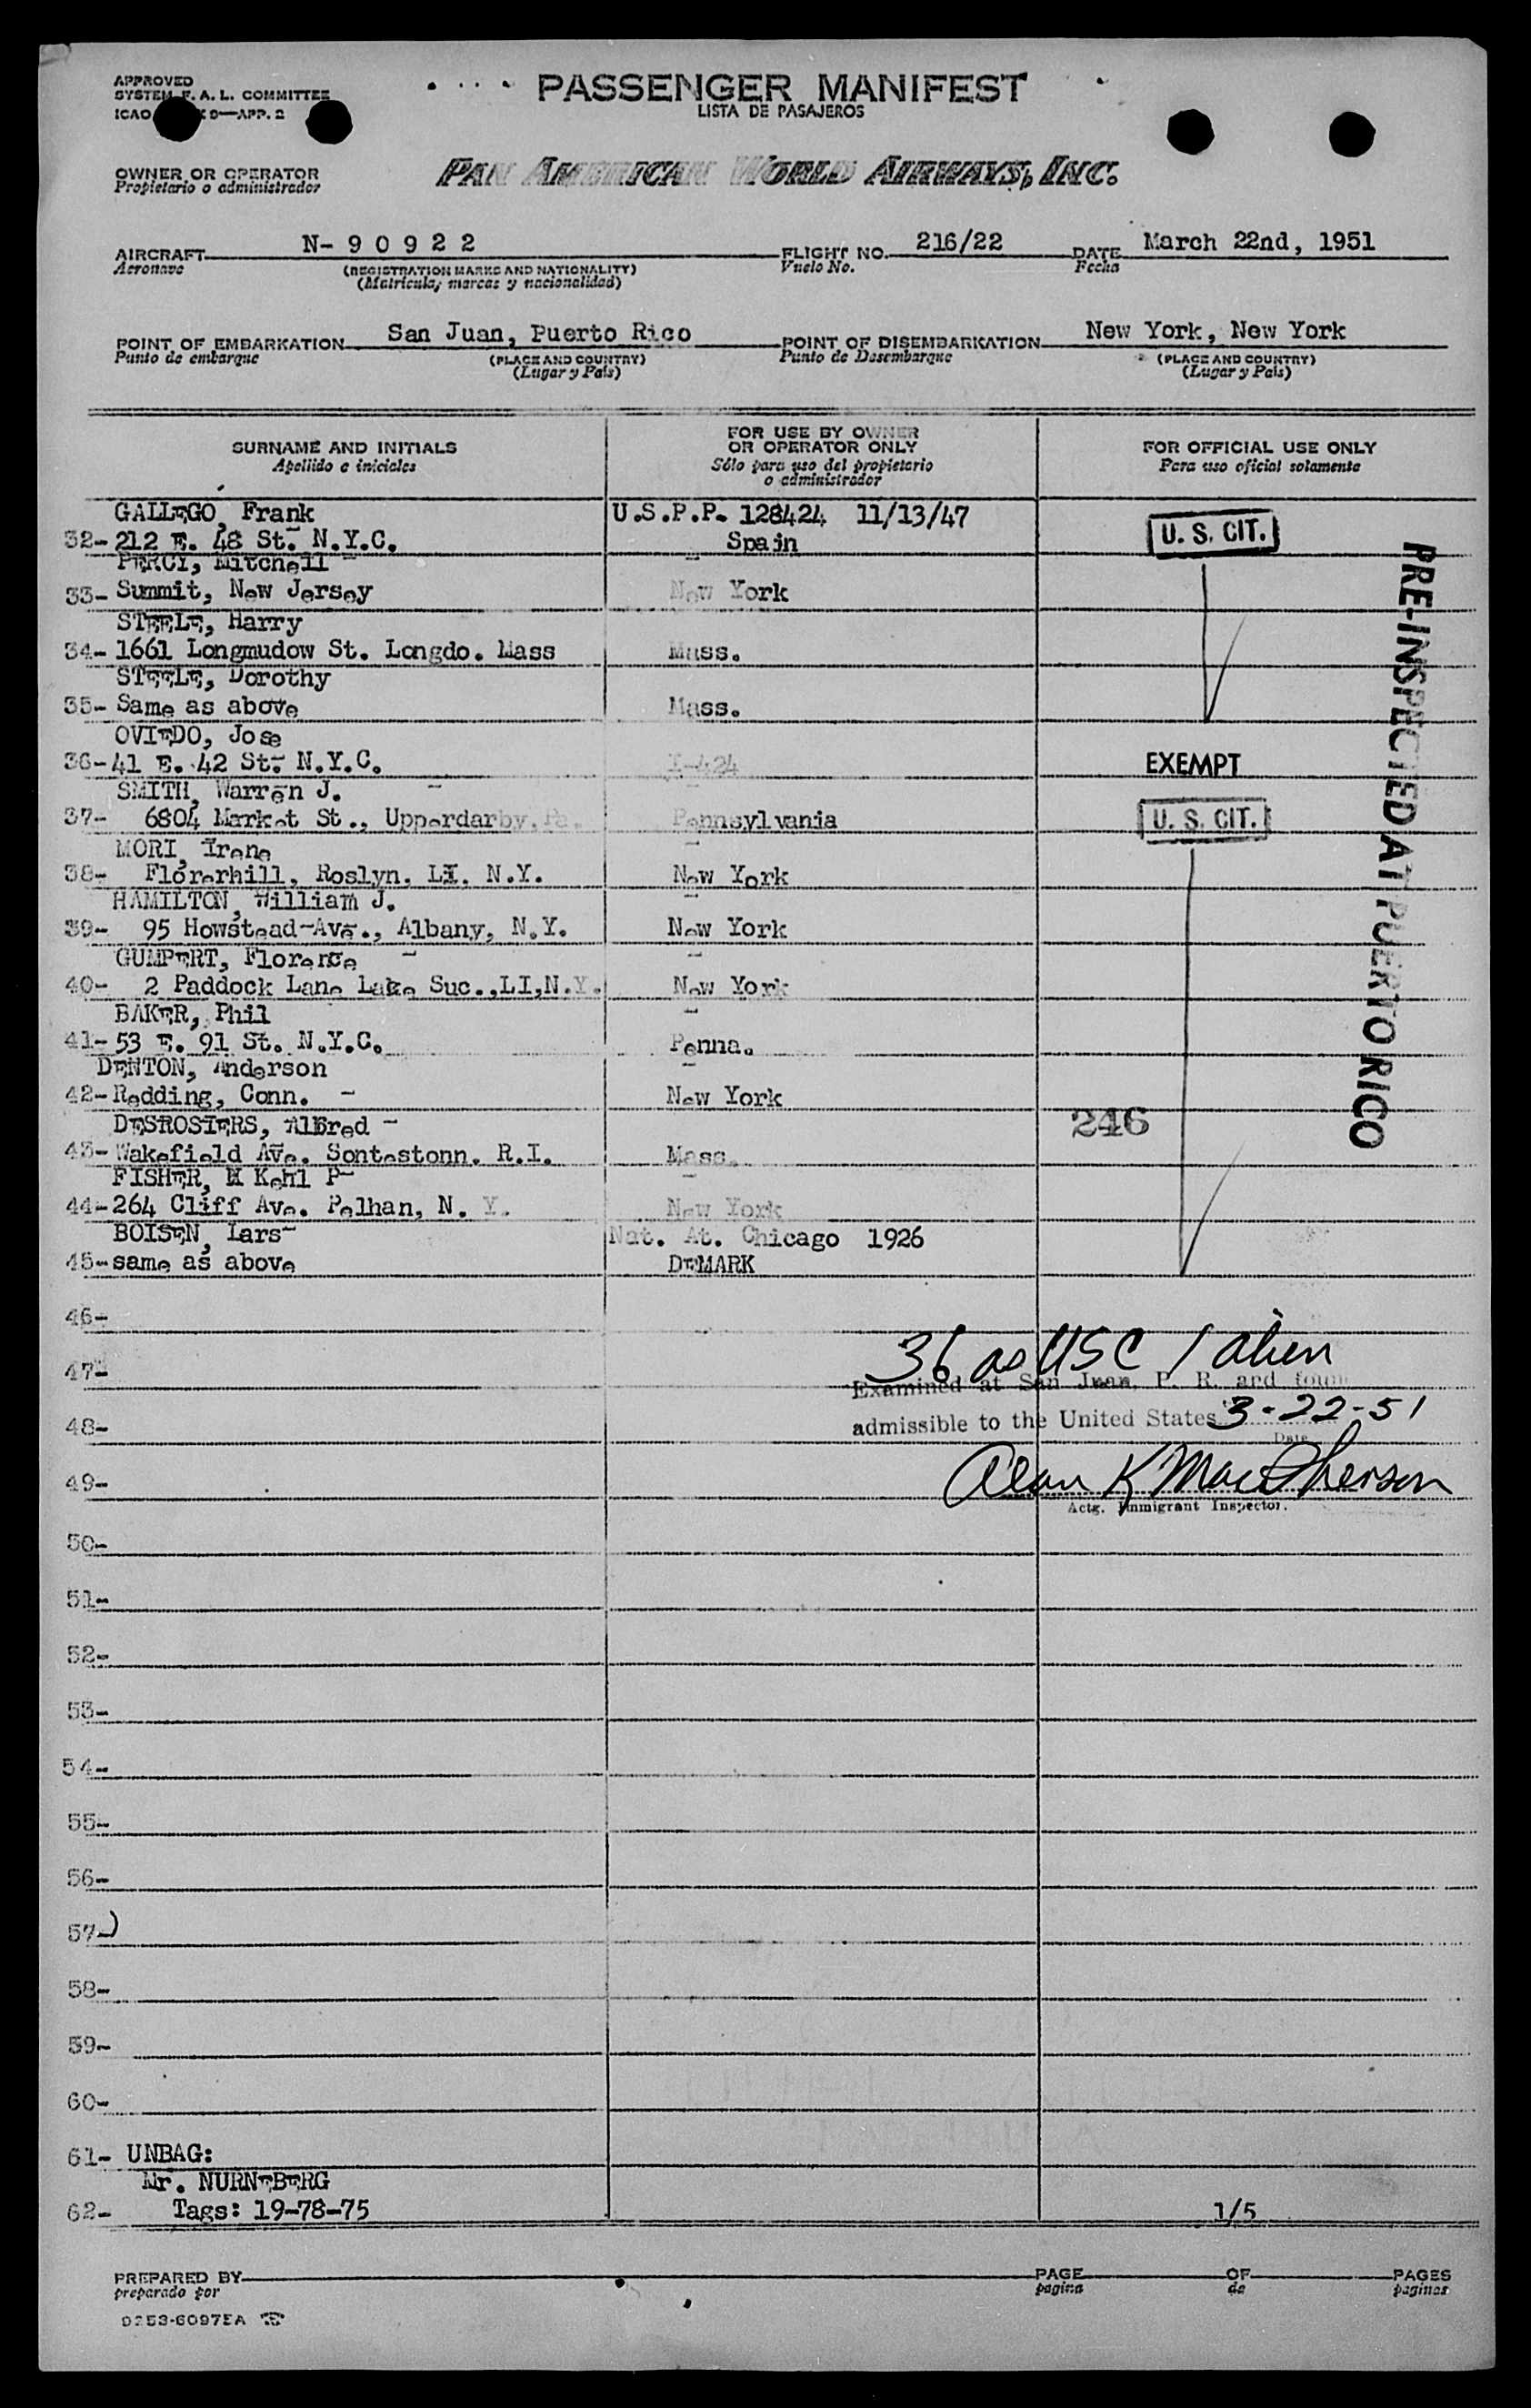 APPROVED
SYSTEM F. A. L. COMMITTEE
ICAO 9—APP. 2
PASSENGER MANIFEST
LISTA DE PASAJEROS
OWNER OR OPERATOR
Propietario o administrador
PAN AMERICAN WORLD AIRWAYS, INC.
AIRCRAFT N- 9 0 9 2 2 FLIGHT NO. 216/22 DATE March 22nd, 1951
Aeronave (REGISTRATION MARKS AND NATIONALITY) Vuelo No. Fecha
(Matricula, marcas y nacionalidad)
POINT OF EMBARKATION San Juan, Puerto Rico POINT OF DISEMBARKATION New York, New York
Punto de embarque (PLACE AND COUNTRY) Punto de Desembarque (PLACE AND COUNTRY)
(Lugar y País) (Lugar y País)
SURNAME AND INITIALS
Apellido e iniciales
FOR USE BY OWNER
OR OPERATOR ONLY
Sólo para uso del propietario
o administrador
FOR OFFICIAL USE ONLY
Para uso oficial solamente
GALLEGO, Frank U.S.P.P. 128424 11/13/47
32- 212 E. 48 St. N.Y.C. Spain U. S. CIT.
PERCY, Mitchell
33- Summit, New Jersey New York
STEELE, Harry
34- 1661 Longmudow St. Longdo. Mass Mass.
STEELE, Dorothy
35- Same as above Mass.
OVIEDO, Jose
36- 41 E. 42 St. N.Y.C. I-424 EXEMPT
SMITH, Warren J.
37- 6804 Market St., Upperdarby, Pa. Pennsylvania U. S. CIT.
MORI, Irene
38- Florerhill, Roslyn. LI. N.Y. New York
HAMILTON, William J.
39- 95 Howstead-Ave., Albany, N.Y. New York
GUMPERT, Florence
40- 2 Paddock Lane Lake Suc.,LI,N.Y. New York
BAKER, Phil
41- 53 E. 91 St. N.Y.C. Penna.
DENTON, Anderson
42- Redding, Conn. - New York
DESROSIERS, Alfred - 246
43- Wakefield Ave. Sontestonn. R.I. Mass.
FISHER, M Kehl P
44- 264 Cliff Ave. Pelhan, N. Y. New York
BOISEN, Lars Nat. At. Chicago 1926
45- same as above DEMARK
PRE-INSPECTED AT PUERTO RICO
46-
36 as USC 1 alien
47-
Examined at San Juan, P. R. and found
admissible to the United States 3-22-51
48-
Date
Alan K MacPherson
49-
Actg. Immigrant Inspector.
50-
51-
52-
53-
54-
55-
56-
57-)
58-
59-
60-
61- UNBAG:
Mr. NURNEBERG
62- Tags: 19-78-75 1/5
PREPARED BY PAGE OF PAGES
preparado por pagina de paginas
9253-6097EA